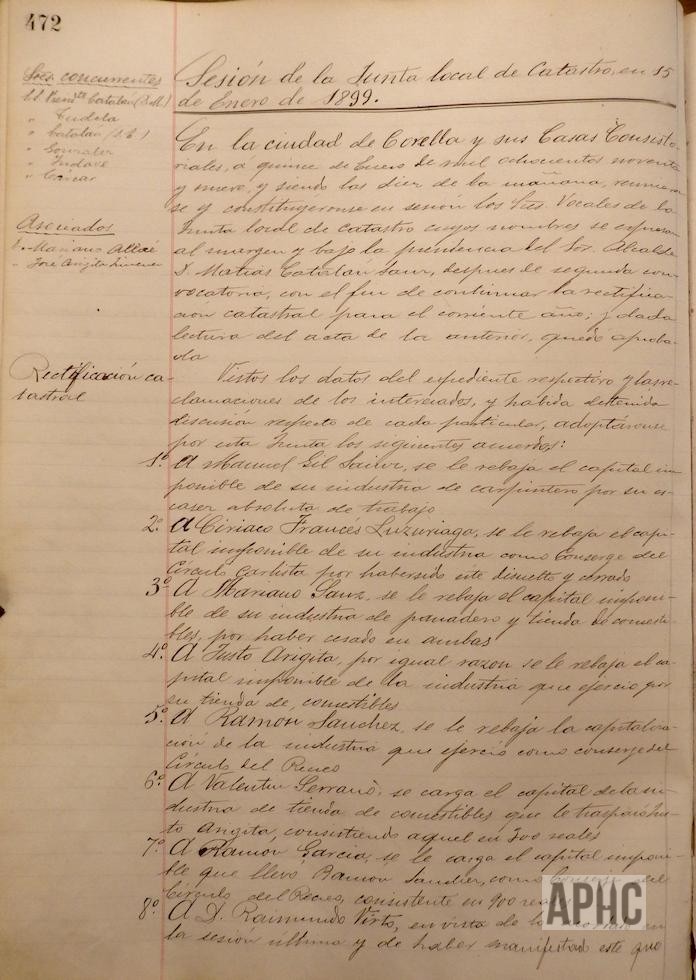 472
Sres. concurrentes
D. Presid.te Catalán (D.M.)
" Tudela
" Catalán
" González
" Indave
Asociados
D. Mariano
" José Arigita
Rectificación ca-
tastral
Sesión de la Junta local de Catastro, en 15
de Enero de 1899.
En la ciudad de Corella y sus Casas Consisto-
riales, a quince de Enero de mil ochocientos noventa
y nueve, y siendo las diez de la mañana, reunieron
se y constituyeronse en sesión los Sres. Vocales de la
Junta local de catastro cuyos nombres se expresan
al margen y bajo la presidencia del Sor. Alcalde
D. Matías Catalán Sanz, despues de segunda con-
vocatoria, con el fin de continuar la rectifica-
ción catastral para el corriente año; y dada
lectura del acta de la anterior, quedó aproba-
da
Vistos los datos del expediente respectivo y las re-
clamaciones de los interesados, y habida detenida
discusión respecto de cada particular, adoptáronse
por esta Junta los siguientes acuerdos:
1º A Manuel Gil, se le rebaja el capital im
ponible de su industria de carpintero por su es-
casez absoluta de trabajo
2º A Ciriaco Francés Luzuriaga, se le rebaja el capi-
tal imponible de su industria como Conserge del
Círculo Carlista por habersido este disuelto y cerrado
3º A Mariano Sanz, se le rebaja el capital imponi-
ble de su industria de panadero y tienda de comesti-
bles, por haber cesado en ambas
4º A Justo Arigita, por igual razon se le rebaja el ca-
pital imponible de la industria que ejercio por
su tienda de comestibles
5º A Ramón Sanchez, se le rebaja la capitaliza-
ción de la industria que ejerció como conserge del
Círculo del Recreo
6º A Valentin Serrano, se carga el capital de la in-
dustria de tienda de comestibles que le traspasó Jus-
to Arigita, consistiendo aquel en 300 reales
7º A Ramon Garcia, se le carga el capital imponi-
ble que llevó Ramon Sanchez, como Conserge del
Círculo del Recreo, consistente en 900 reales
8º A D. Raimundo Virto, en vista de lo acordado en
la sesión última y de haber manifestad este que
APHC